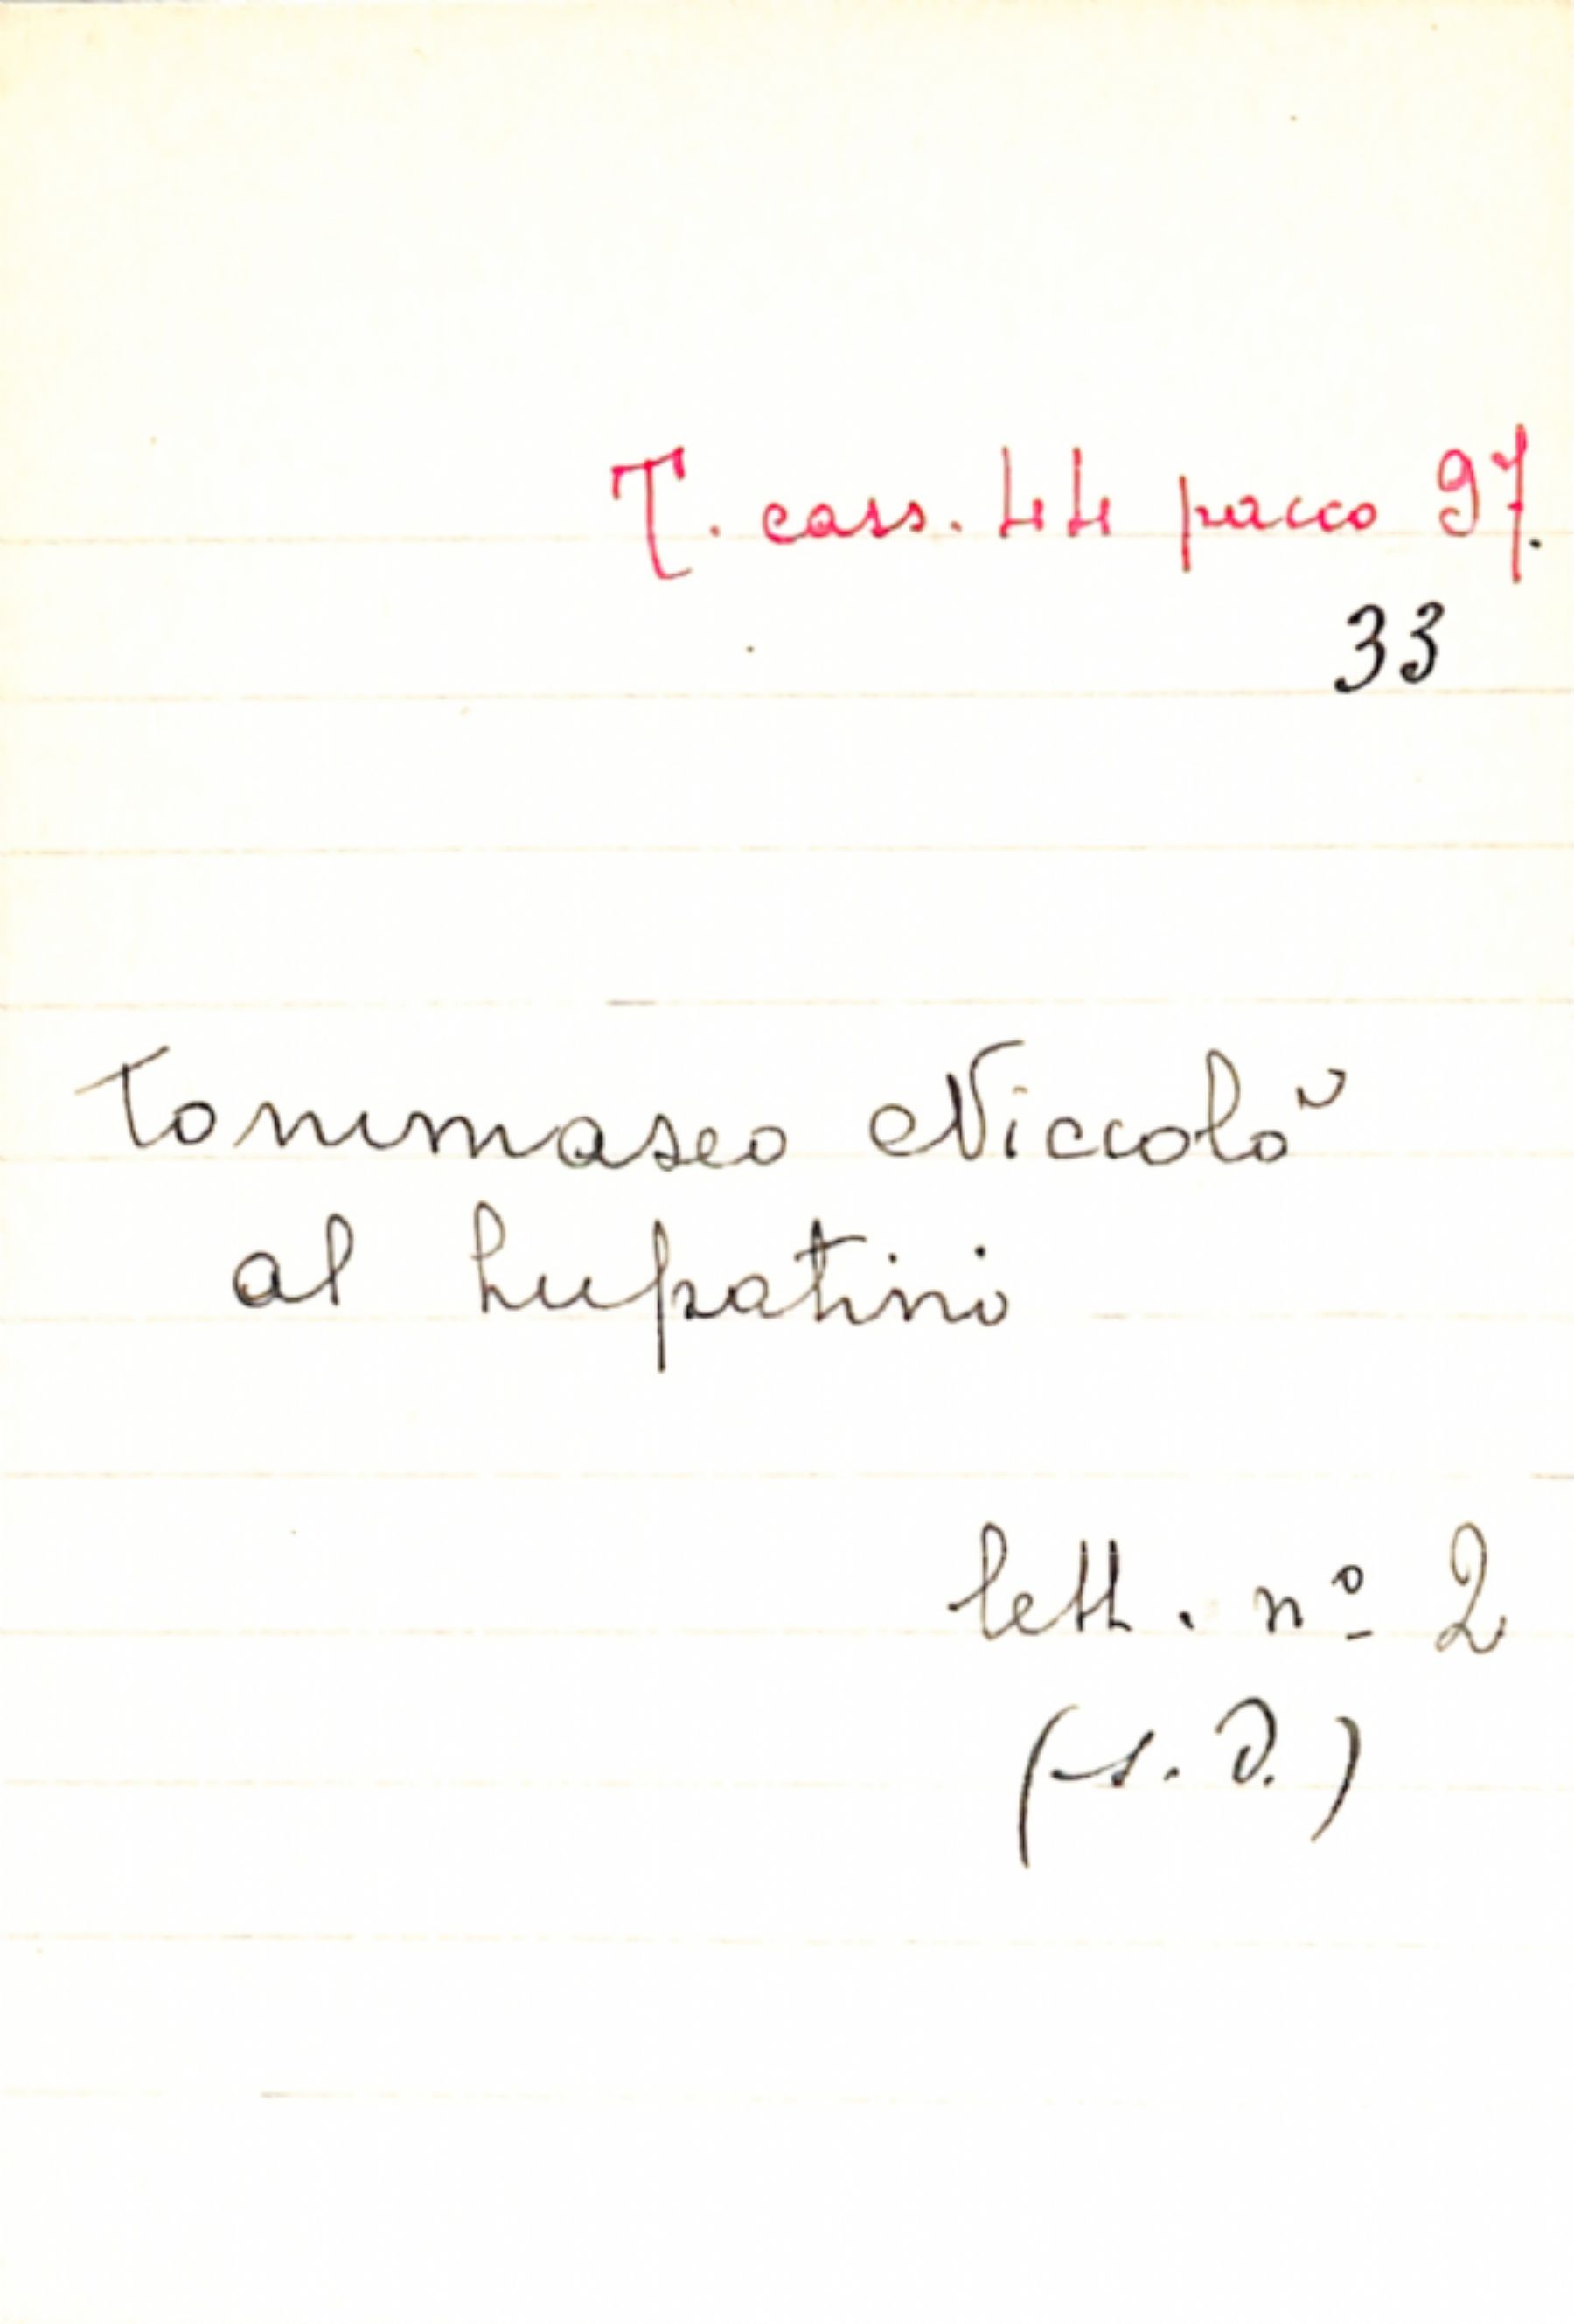 T. cass. 44 pacco 97.
33
Tommaseo Niccolò
al Lupatini
lett. nº 2
(s. d.)